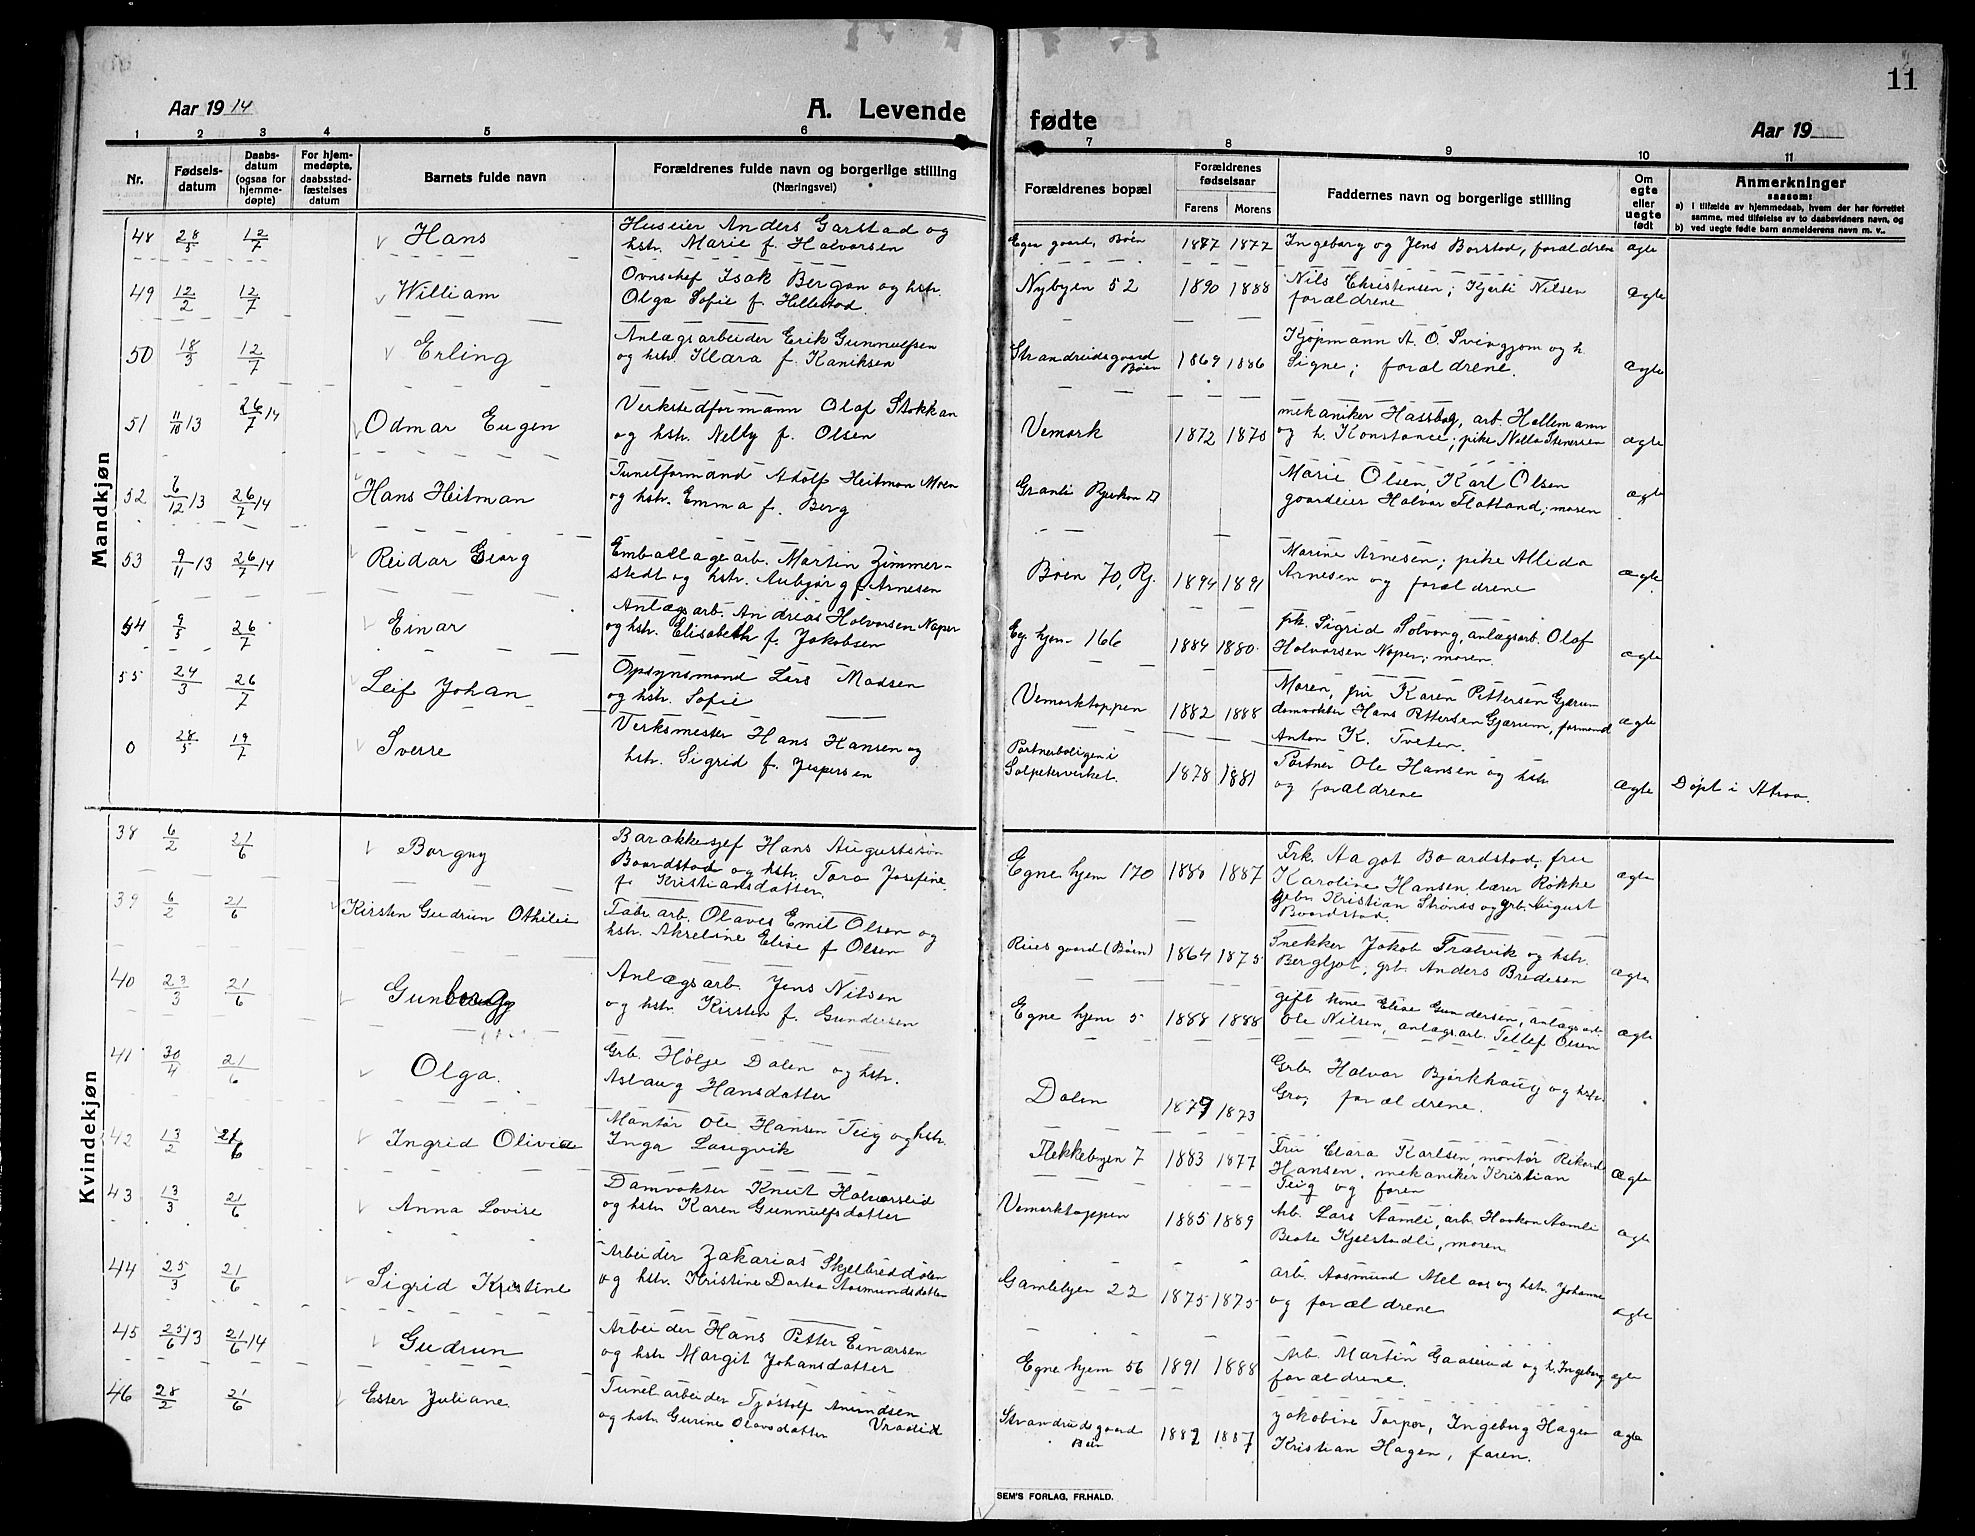 11
Aar 1914
A. Levende fødte
Aar 19
1 2 3 4 5 6 7 8 9 10 11
Nr.
Fødsels-
datum
Daabs-
datum
(ogsaa for
hjemme-
døpte)
For hjem-
medøpte,
daabsstad-
fæstelses
datum
Barnets fulde navn
Forældrenes fulde navn og borgerlige stilling
(Næringsvei)
Forældrenes bopæl
Forældrenes
fødselsaar
Farens Morens
Faddernes navn og borgerlige stilling
Om
egte
eller
uegte
født
Anmerkninger
saasom:
a) I tilfælde av hjemmedaab, hvem der har forrettet
samme, med tilføielse av to daabsvidners navn, og
b) ved uegte fødte barn anmelderens navn m. v..
Mandkjøn
48 28/5 12/7 Hans
Huseier Anders Garstad og
hstr. Marie f. Halvorsen
Egen gaard, Bøen 1887 1872
Ingeborg og Jens Borstad, forældrene
ægte
49 12/2 12/7 William
Ovnschef Isak Bergan og hstr.
Olga Sofie f. Hillestad.
Nybyen 52 1890 1888
Nils Christensen; Kjerti Nilsen
forældrene
ægte
50 18/3 12/7 Erling
Anlægsarbeider Erik Gunnulfsen
og hstr. Klara f. Kaniksen
Strandreidsgaard
Bøen 1869 1886
Kjøpmann A. O. Svingjom og h.
Signe; forældrene.
ægte
51 11/10 13 26/7 14 Odmar Eugen
Verkstedformann Olaf Stokkan
og hstr. Nelly f. Olsen
Vemork 1872 1870
mekaniker Hassbog, arb. Hallemann
og h. Konstance; pike Nella Stenersen
ægte
52 6/12 13 26/7 14 Hans Heitman
Tunelformand Adolf Heitman Moen
og hstr. Emma f. Berg
Granli Rjukan
Marie Olsen, Karl Olsen
gaardeier Halvor Flatland; moren
ægte
53 9/11 13 26/7 14 Reidar Georg
Emballagearb. Martin Zimmer-
stedt og hstr. Aubjørg f. Arnesen
Bøen 70, Rj. 1894 1891
Marine Arnesen; pike Allida
Arnesen og forældrene
ægte
54 9/5 26/7 Einar
Anlægsarb. Andreas Halvorsen Naper
og hstr. Elisabeth f. Jakobsen
Eg. hjem 166 1884 1880
pk. Sigrid Solvong, anlægsarb. Olaf
Halvorsen Naper; moren.
ægte
55 24/3 26/7 Leif Johan
Opsynsmand Lars Madsen
og hstr. Sofie
Vemorktoppen 1882 1888
Moren, fru Karen Pettersen Gjærum
damvokter Hans Pettersen Gjærum, formand
Anton K. Tveten.
ægte
0 28/5 19/7 Sverre
Verksmester Hans Hansen og
hstr. Sigrid f. Jespersen
Portnerboligen i
Salpeterverket. 1878 1881
Portner Ole Hansen og hstr
og forældrene
ægte
Døpt i Atraa.
Kvindekjøn
38 6/2 21/6 Borgny
Barakkesjef Hans Augustsøn
Baardstad og hstr. Tora Josefine
f. Kristiansdatter.
Egne hjem 170 1886 1887
Frk. Aagot Baardstad, fru
Karoline Hansen, lærer Røkke
grbr. Kristian Strønds og grb. August
Baardstad.
ægte
39 6/2 21/6 Kirsten Gudrun Othilie
Fabr arb. Olaves Emil Olsen og
hstr. Akreline Elise f Olsen
Ruesgaard (Bøen) 1864 1875
Snekker Jakob Trætvik og hstr.
Bergljot, grb. Anders Bredesen
ægte
40 23/3 21/6 Gunborg
Anlægsarb. Jens Nilsen
og hstr. Kirsten f. Gundersen
Egne hjem 5 1888 1888
gift kone Elise Gundersen, anlægsarb.
Ole Nilsen, anlægsarb. Tellef Olsen
ægte
41 30/4 21/6 Olga.
Grb. Hølje Dalen og hstr.
Aslaug Hansdatter
Dalen 1879 1873
Grb. Halvor Bjørkhaug og hstr.
Gro, forældrene.
ægte
42 13/2 21/6 Ingrid Olivia
Montør Ole Hansen Teig og hstr.
Inga Langvik
Flekkebyen 7 1883 1877
Fru Clara Karlsen, montør Rikard
Hansen, mekaniker Kristian
Teig og faren
ægte
43 13/3 21/6 Anna Lovise
Damvokter Knut Halvorslid
og hstr Karen Gunnulfsdatter
Vemorktoppen 1885 1889
Arb. Lars Aamli, arb. Haakon Aamli
Beate Kjelstadli, moren
ægte
44 25/3 21/6 Sigrid Kristine
Arbeider Zakarias Skjelbreddalen
og hstr. Kristine Dortea Aasmundsdatter
Gamlebyen 22 1875 1875
arb. Aasmund Melaas og hstr. Johanne
og forældrene
ægte
45 25/6 13 21/6 14 Gudrun
Arbeider Hans Petter Einarsen
og hstr Margit Johansdatter
Egne hjem 56 1891 1888
Arb. Martin Gaaserud og h. Ingeborg
forældrene.
ægte
46 28/2 21/6 Ester Juliane.
Tunelarbeider Tjøstolf Amundsen
og hstr. Gurine Olavsdatter Vraalid
Strandrudsgaard
Bøen 1882 1887
Jakobine Torper, Ingeborg Hagen
Kristian Hagen, faren.
ægte
SEM'S FORLAG, FR.HALD.